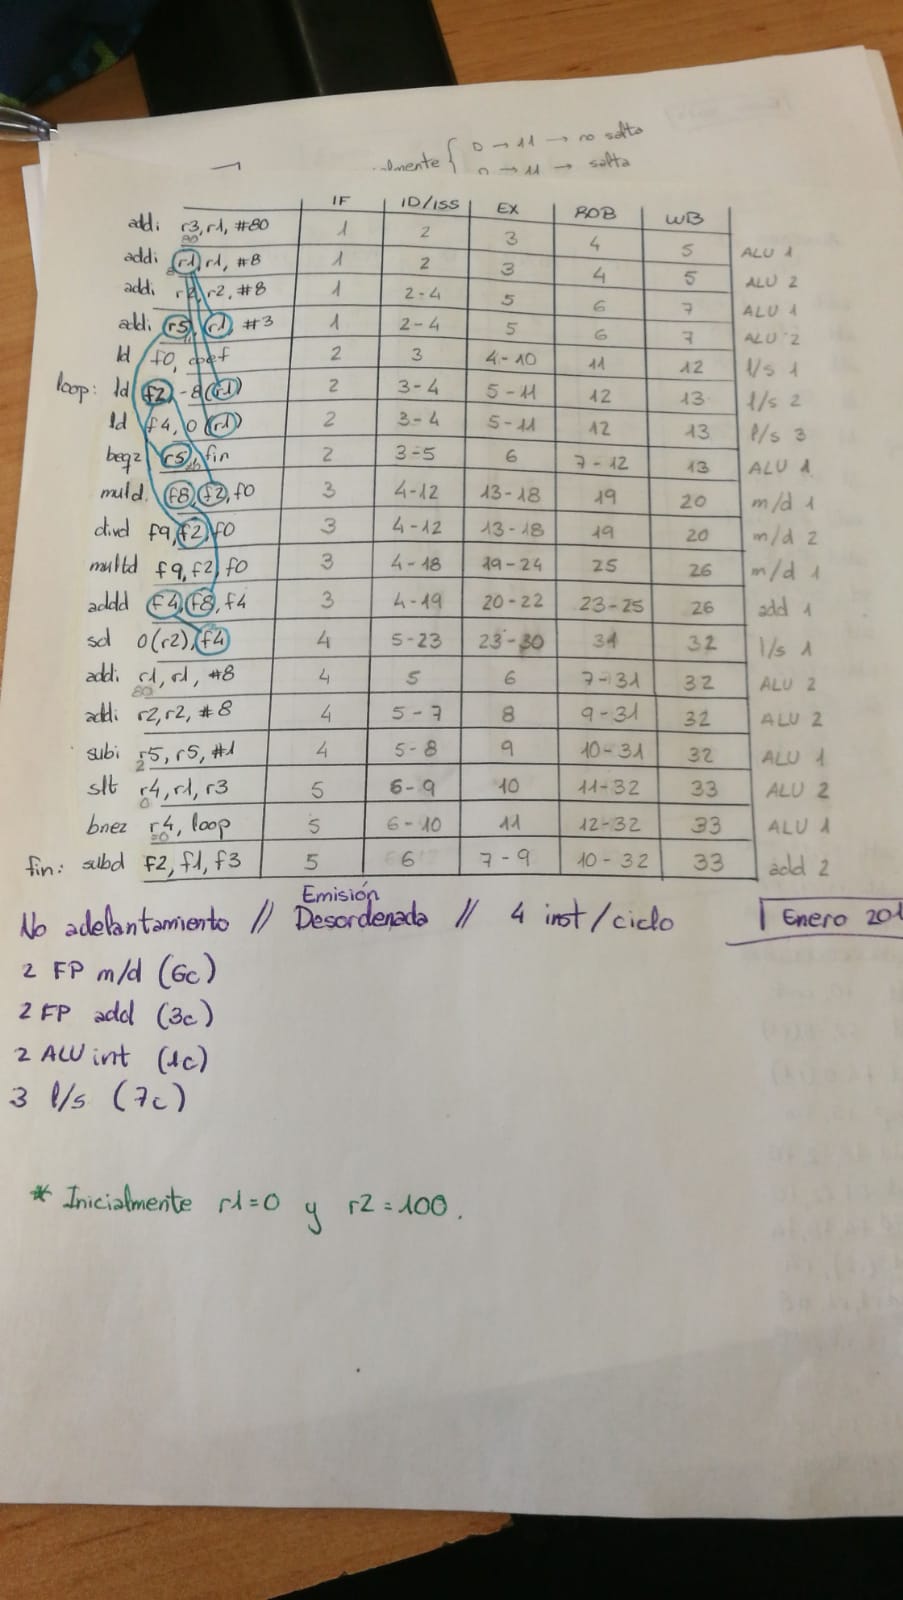 0 → 11 → no salta
lmente { 0 → 11 → salta
IF ID/ISS EX ROB WB
addi r3,r1,#80 1 2 3 4 5 ALU 1
80
addi r1,r1,#8 1 2 3 4 5 ALU 2
addi r2,r2,#8 1 2-4 5 6 7 ALU 1
addi r5,r1 #3 1 2-4 5 6 7 ALU 2
ld f0, coef 2 3 4-10 11 12 l/s 1
loop: ld f2,-8(r1) 2 3-4 5-11 12 13 l/s 2
ld f4,0(r1) 2 3-4 5-11 12 13 l/s 3
beqz r5, fin 2 3-5 6 7-12 13 ALU 1
muld. f8,f2,f0 3 4-12 13-18 19 20 m/d 1
divd f9,f2,f0 3 4-12 13-18 19 20 m/d 2
multd f9,f2,f0 3 4-18 19-24 25 26 m/d 1
addd f4,f8,f4 3 4-19 20-22 23-25 26 add 1
sd 0(r2),f4 4 5-23 23-30 31 32 l/s 1
addi r1,r1,#8 4 5 6 7-31 32 ALU 2
80
addi r2,r2,#8 4 5-7 8 9-31 32 ALU 2
subi r5,r5,#1 4 5-8 9 10-31 32 ALU 1
2
slt r4,r1,r3 5 6-9 10 11-32 33 ALU 2
0
bnez r4, loop 5 6-10 11 12-32 33 ALU 1
=0
fin: subd f2,f1,f3 5 6 7-9 10-32 33 add 2
No adelantamiento // Emisión Desordenada // 4 inst/ciclo
Enero 201
2 FP m/d (6c)
2 FP add (3c)
2 ALU int (1c)
3 l/s (7c)
* Inicialmente r1=0 y r2=100.